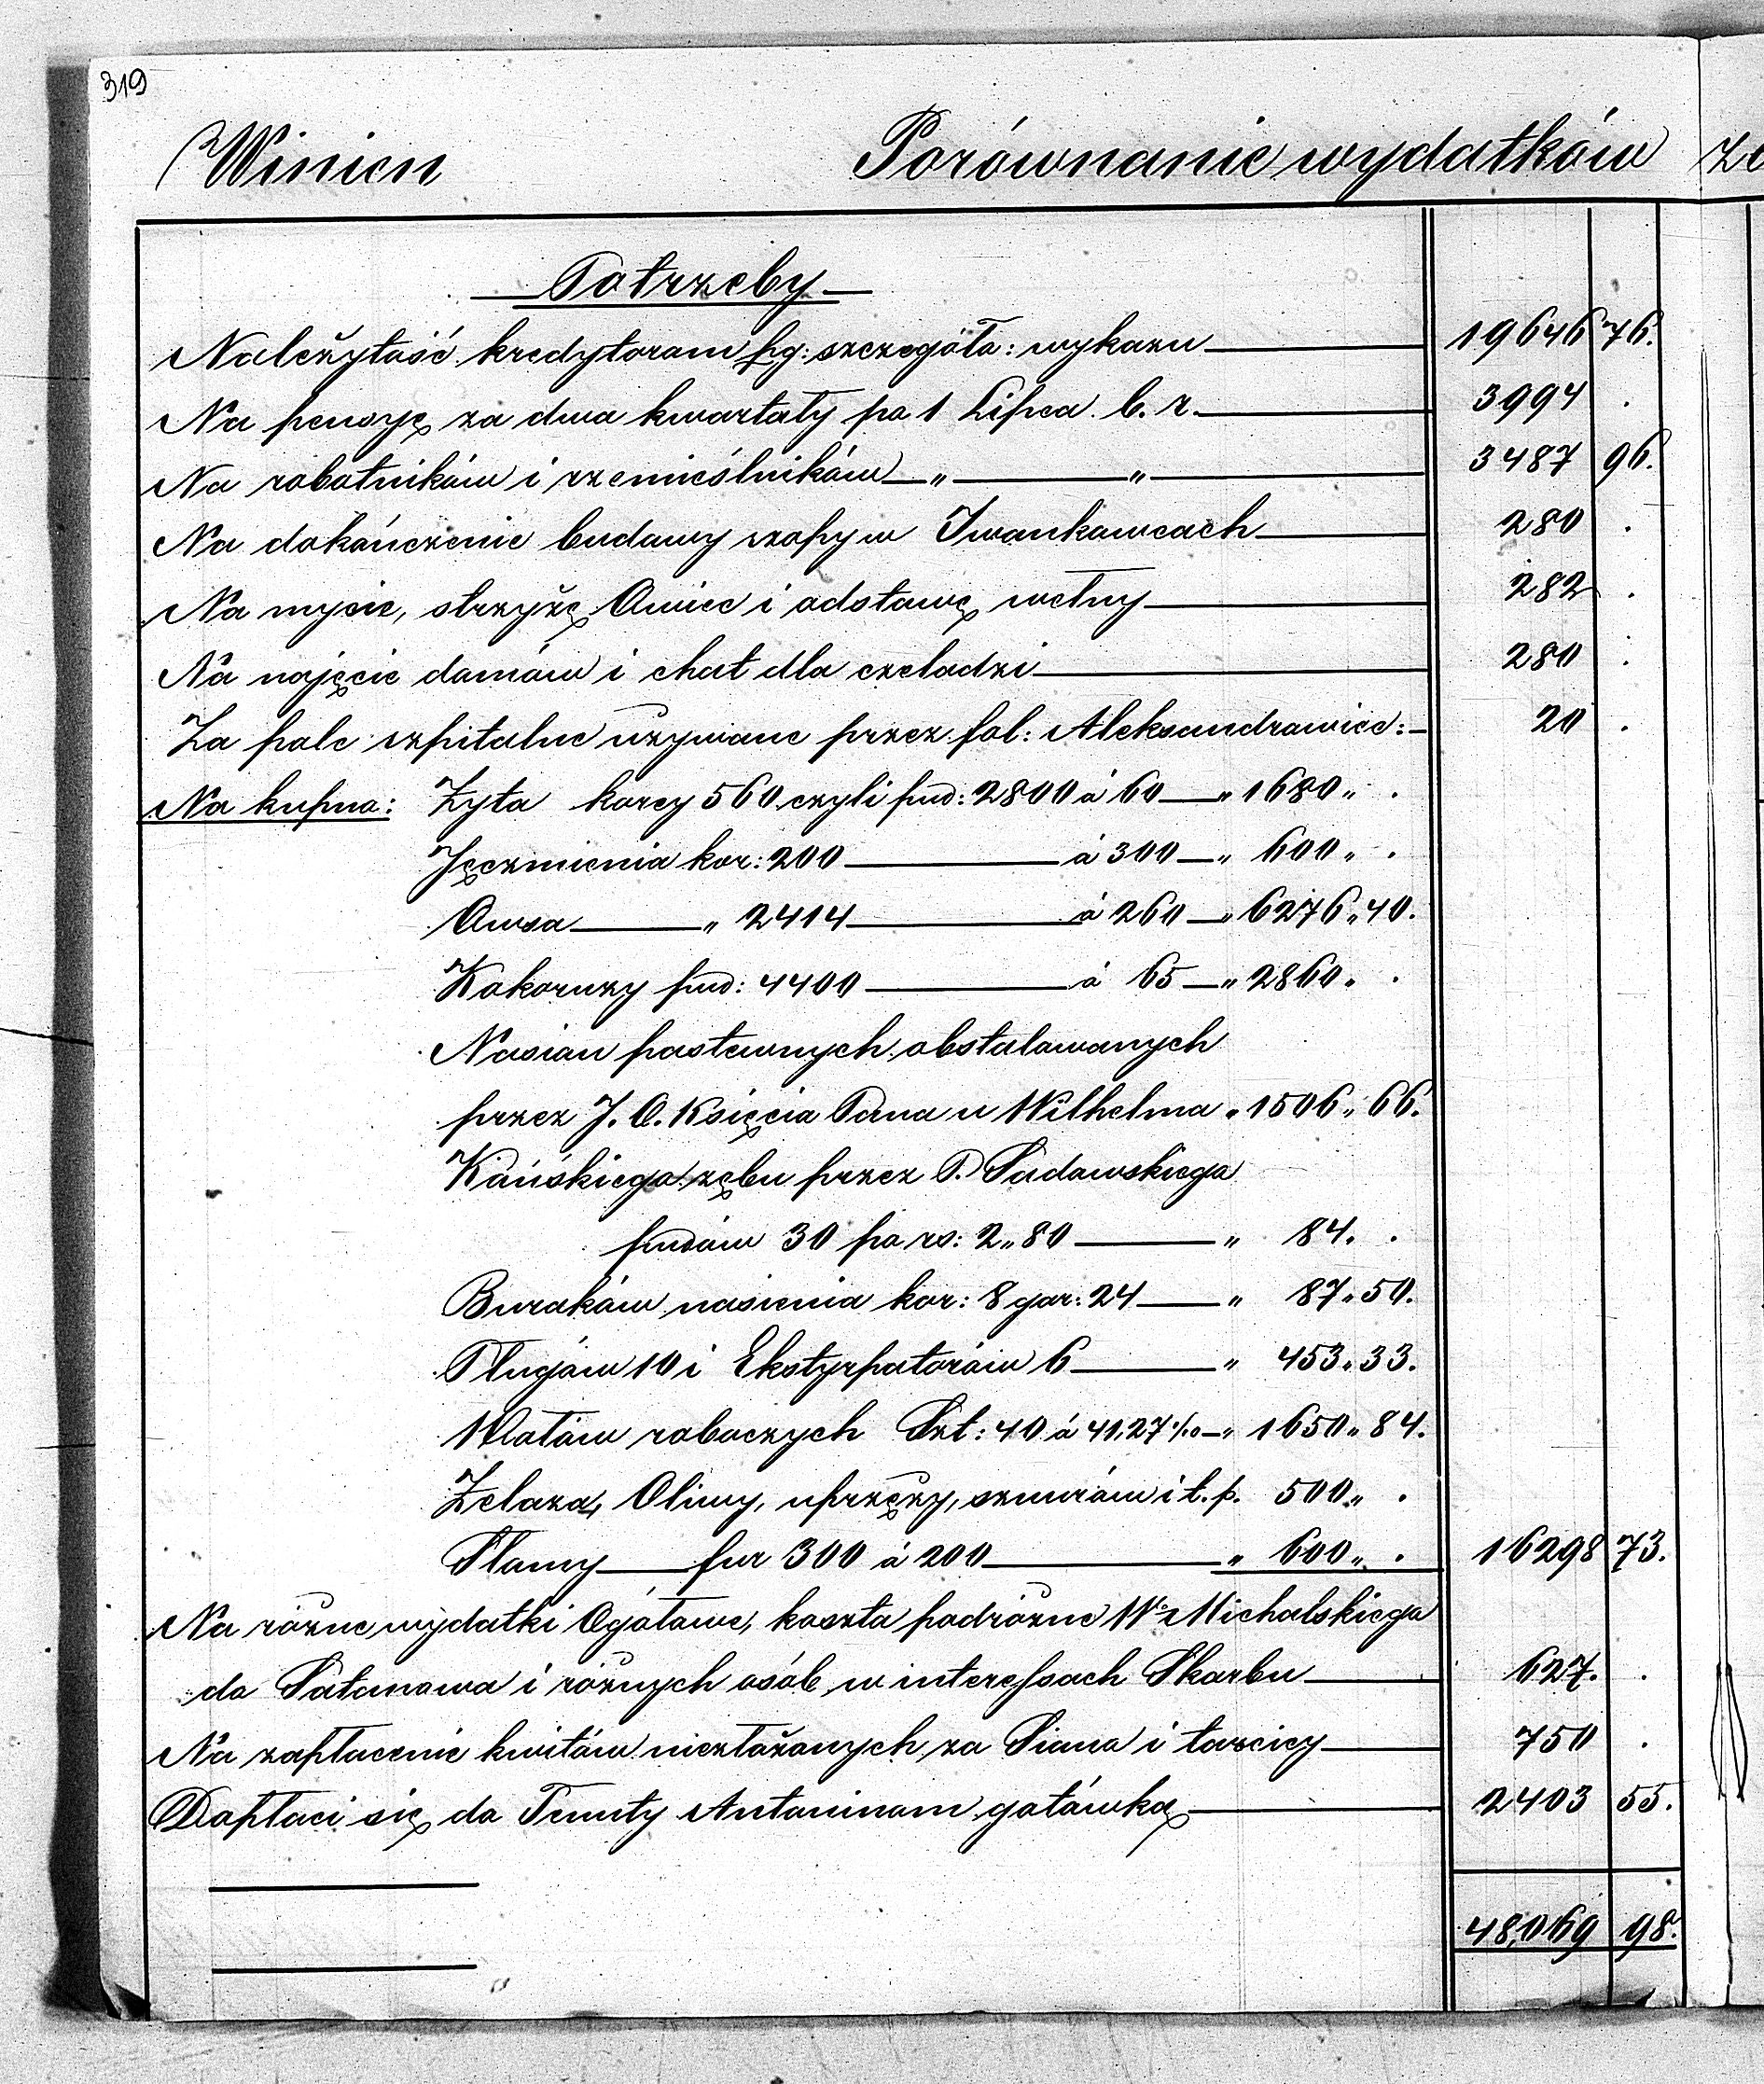 319
Winien Porównanie wydatków
Potrzeby
Należytość kredytorom pg: szczegóło: wykazu 19646 76.
Na pensyę za dwa kwartały po 1 Lipca b. r. 3994 .
Na robotników i rzemieślników „ „ 3487 96.
Na dokończenie budowy szopy w Iwankowcach 280 .
Na mycie, strzyżę Owiec i odstawę wełny 282 .
Na najęcie domów i chat dla czeladzi 280 .
Za pole szpitalne używane przez fol: Aleksandrowiec: 20 .
Na kupno: Żyta korcy 560 czyli pud: 2800 á 60 „ 1680 „ .
Jęczmienia kor: 200 á 300 „ 600 „ .
Owsa „ 2414 á 260 „ 6276 „ 40.
Kokoruzy pud: 4400 á 65 „ 2860 „ .
Nasion pastewnych obstalowanych
przez J. O. Księcia Pana u Wilhelma „ 1506 „ 66.
Końskiego zębu przez P. Sadowskiego
pudów 30 po rs: 2 „ 80 „ 84. .
Buraków nasienia kor: 8 gar: 24 „ 87 „ 50.
Pługów 10 i Ekstyrpatorów 6 „ 453 „ 33.
Wołów roboczych Szt: 40 á 41,27 1/10 „ 1650 „ 84.
Żelaza, Oliwy, uprzęży, sznurów i t. p. 500 „ .
Słomy fur 300 á 200 „ 600 „ . 16298 73.
Na różne wydatki Ogółowe, koszta podróżne Wº Michalskiego
do Satanowa i różnych osób w interessach Skarbu 627. .
Na zapłacenie kwitów niezłożonych za Siano i tarcicy 750 .
Dopłaci się do Tenuty Antoninom gotówką 2403 55.
48,069 98.